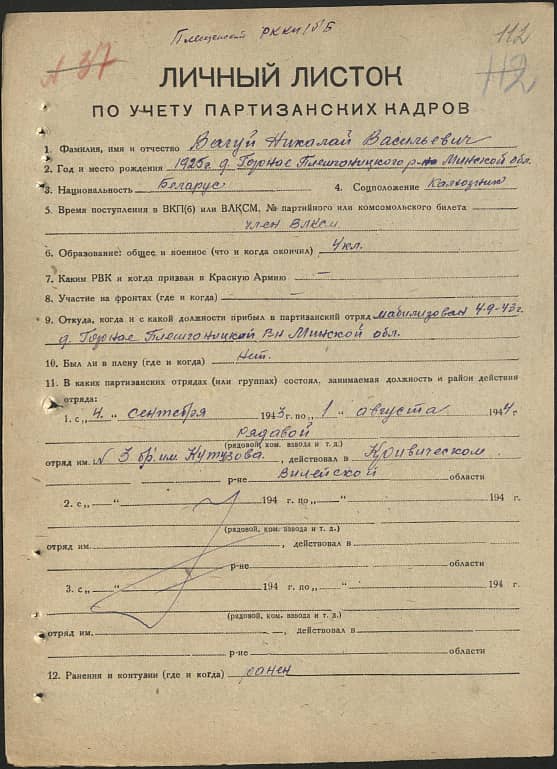 РККА
112
№ 37
112
ЛИЧНЫЙ ЛИСТОК
ПО УЧЕТУ ПАРТИЗАНСКИХ КАДРОВ
1. Фамилия, имя и отчество Вагуй Николай Васильевич
2. Год и место рождения 1925г. д. Горное Плещаницкого р-на Минской обл.
3. Национальность Беларус 4. Соцположение Калхозник
5. Время поступления в ВКП(б) или ВЛКСМ, № партийного или комсомольского билета
член ВЛКСМ
6. Образование: общее и военное (что и когда окончил) 4 кл.
7. Каким РВК и когда призван в Красную Армию —
8. Участие на фронтах (где и когда)
9. Откуда, когда и с какой должности прибыл в партизанский отряд мабилизован 4-9-43г.
д. Горное Плещаницкий Р-н Минской обл.
10. Был ли в плену (где и когда) Нет.
11. В каких партизанских отрядах (или группах) состоял, занимаемая должность и район действия
отряда:
1. с „4. “ сентября 1943г. по „1 “ августа 1944г
рядавой
(рядовой, ком. взвода и т. д.)
отряд им. № 3 бр. им Кутузова, действовал в Кривическом
р-не Вилейской области
2. с „ “ 194 г. по „ “ 194 г.
(рядовой, ком. взвода и т. д.)
отряд им. , действовал в
р-не области
3. с „ “ 194 г. по „ “ 194 г.
(рядовой, ком. взвода и т. д.)
отряд им. , действовал в
р-не области
12. Ранения и контузии (где и когда) ранен